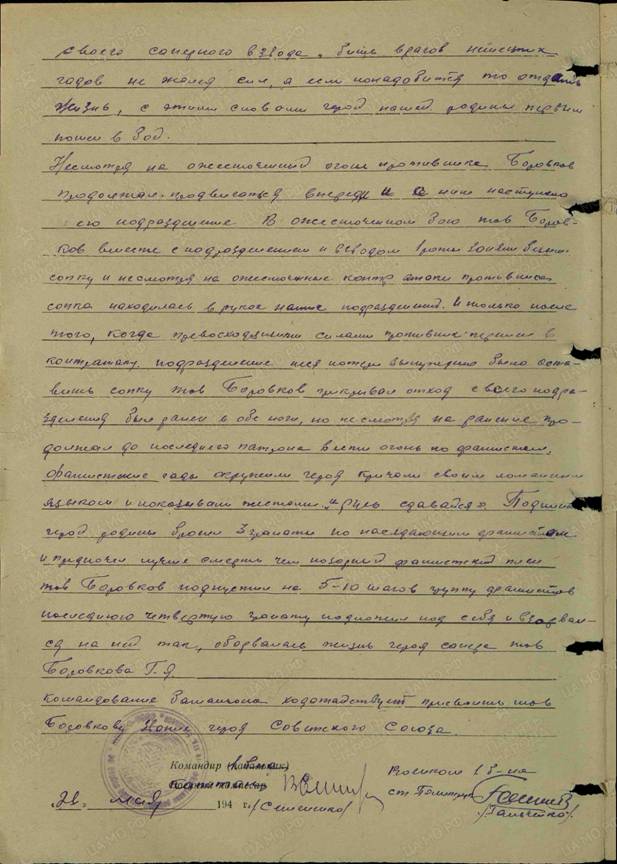 своего саперного взвода. бить врагов немецких
гадов не жалея сил, а если понадобится то отдать
жизнь, с этими словами герой нашей родины первым
пошел в бой.
Несмотря на ожесточенный огонь противника Боровков
продолжал продвигаться вперед и с ним наступало
его подразделение В ожесточенном бою тов Боров-
ков вместе с подразделением и взводом роты
сопку и несмотря на ожесточенные контр атаки противника
сопка находилась в руках наших подразделений. И только после
того, когда превосходящими силами противник перешел в
контратаку подразделение неся потери вынуждено было оста-
вить сопку тов Боровков прикрывая отход своего подра-
зделения был ранен в обе ноги, но несмотря на ранение про-
должал до последнего патрона вести огонь по фашистам,
фашистские гады окружили героя кричали своим ломанным
языком и показывали жестами „Русь сдавайся". 
герой родины бросил 3 гранаты по наседающим фашистам
и предпочел лучше смерть чем позорный фашистский плен
тов Боровков подпустил на 5-10 шагов группу фашистов
последнюю четвертую гранату подложил под себя и взорвал-
ся на ней так, оборвалась жизнь героя сапера тов
Боровкова Г.Я.
Командование батальона ходотайствует присвоить тов
Боровкову героя Советского Союза.
Командир (начальник)
Военком
ст. Политрук
28. мая 194 г.